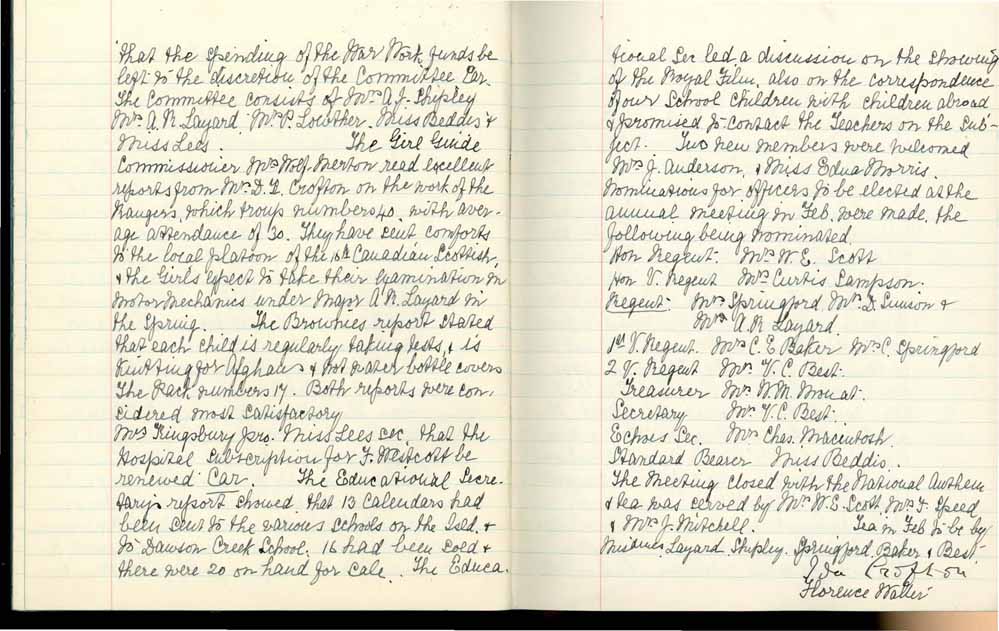 that the spending of the War Work funds be
left to the discretion of the Committee Car.
The Committee consists of Mrs A. J. Shipley
Mrs A. R. Layard Mrs P. Lowther. Miss Beddis &
Miss Lees. The Girl Guide
Commissioner Mrs Wolf. Merton read excellent
reports from Mrs D. K. Crofton on the work of the
Rangers, which troup numbers 40, with aver-
age attendance of 30. They have sent comforts
to the local platoon of the 16th Canadian Scottish,
& the Girls expect to take their examination in
Motor Mechanics under Major A. R. Layard in
the Spring. The Brownies report stated
that each child is regularly taking tests, & is
knitting for Afghans & hot water bottle covers
The Pack numbers 17. Both reports were con-
sidered most satisfactory
Mrs Kingsbury pro. Miss Lees sec. that the
Hospital Subscription for F. Westcott be
renewed Car. The Educational Secre-
tary's report showed that 13 Calendars had
been sent to the various schools on the Isld. &
to Dawson Creek School. 16 had been sold &
there were 20 on hand for sale. The Educa-
tional Sec led a discussion on the showing
of the Royal Film, also on the correspondence
of our School Children with children abroad
& promised to contact the Teachers on the sub-
ject. Two new members were welcomed
Mrs J. Anderson, & Miss Edna Morris.
Nominations for officers to be elected at the
annual meeting in Feb. were made, the
following being nominated.
Hon Regent. Mrs W. E. Scott
Hon V. Regent Mrs Curtis Sampson.
Regent: Mrs Springford Mrs D. &
Mrs A. R. Layard.
1st V. Regent. Mrs C. E Baker Mrs C. Springford
2 V. Regent Mrs V. C. Best.
Treasurer Mrs W. M. Mouat.
Secretary Mrs V. C. Best.
Echoes Sec. Mrs Chas. Macintosh.
Standard Bearer Miss Beddis.
The Meeting closed with the National Anthem
& tea was served by Mrs W. E. Scott. Mrs F. Speed
& Mrs J. Mitchell. Tea in Feb to be by
Layard. Shipley. Springford. Baker & Best.
Crofton
Florence Walter